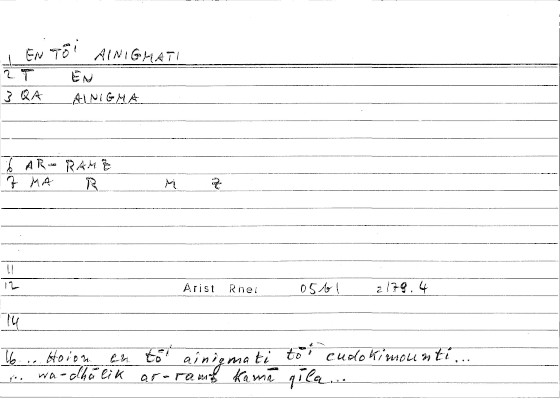 1 EN TŌI AINIGMATI
2 T EN
3 QA AINIGMA
6 AR-RAMZ
7 MA R M Z
11
12 Arist Rhet 05b1 2179.4
14
16 .. Hoion en tōi ainigmati tōi eudokimounti...
... wa-dhālik ar-ramz kamā qīla...